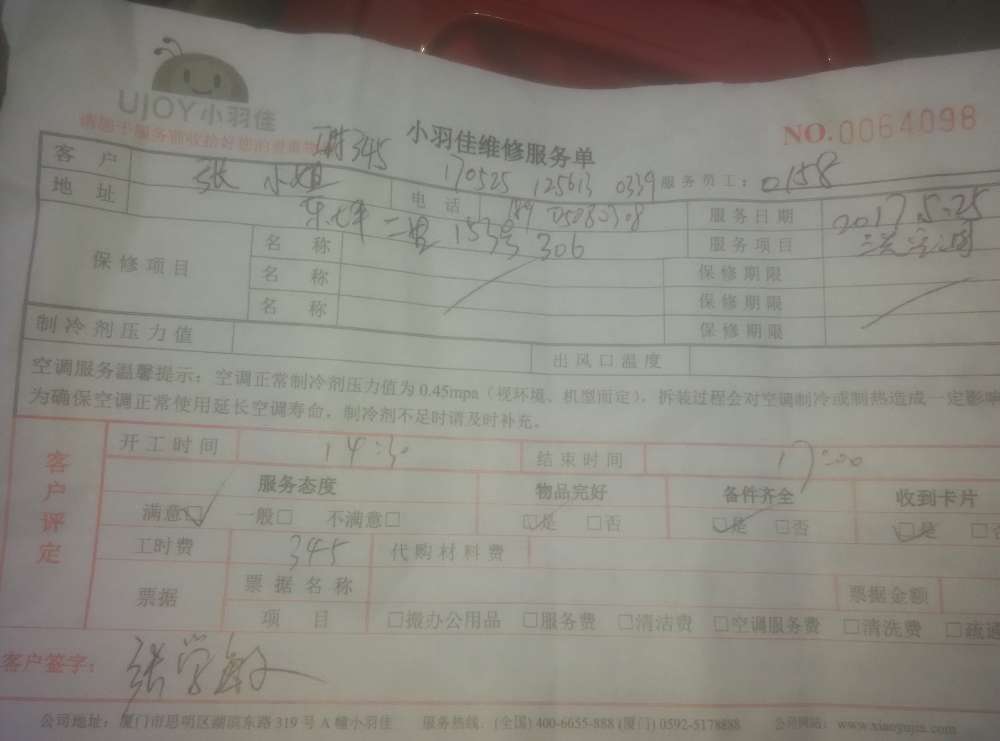 UJOY小羽佳
小羽佳维修服务单
NO.0064098
345
170525 125613 0339 服务员工:0158
客户 张小姐 电话 服务日期 2017.5.25
地址 153号306 服务项目
保修项目 名称 保修期限
名称 保修期限
名称 保修期限
制冷剂压力值 出风口温度
空调服务温馨提示:空调正常制冷剂压力值为0.45mpa(视环境、机型而定),拆装过程会对空调制冷或制热造成一定影响
为确保空调正常使用延长空调寿命,制冷剂不足时请及时补充。
客户评定
开工时间 14:30 结束时间 17:00
服务态度 物品完好 备件齐全 收到卡片
满意□ 一般□ 不满意□ □是 □否 □是 □否 □是
工时费 345 代购材料费
票据 票据名称 票据金额
项目 □搬办公用品 □服务费 □清洁费 □空调服务费 □清洗费 □疏通
客户签字: 张学敏
公司地址:厦门市思明区湖滨东路319号A幢小羽佳 服务热线:(全国)400-6655-888(厦门)0592-5178888 公司网站:www.xiaoyujia.com